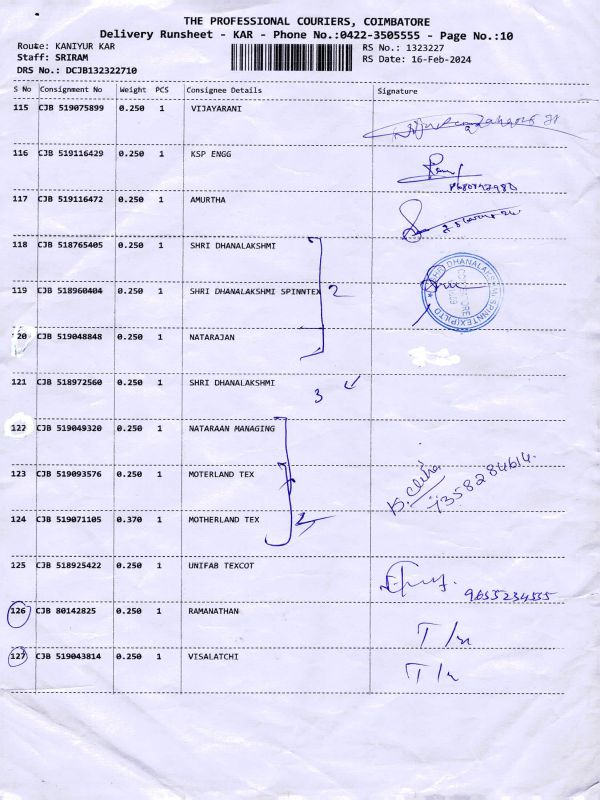 THE PROFESSIONAL COURIERS, COIMBATORE
Delivery Runsheet - KAR - Phone No.:0422-3505555 - Page No.:10
Route: KANIYUR KAR
RS No.: 1323227
Staff: SRIRAM
RS Date: 16-Feb-2024
DRS No.: DCJB132322710
S No Consignment No Weight PCS Consignee Details Signature
115 CJB 519075899 0.250 1 VIJAYARANI
116 CJB 519116429 0.250 1 KSP ENGG
117 CJB 519116472 0.250 1 AMURTHA
118 CJB 518765405 0.250 1 SHRI DHANALAKSHMI
119 CJB 518960404 0.250 1 SHRI DHANALAKSHMI SPINNTEX 2
SHRI DHANALAKSHMI SPINNTEX (P) LTD
120 CJB 519048848 0.250 1 NATARAJAN
121 CJB 518972560 0.250 1 SHRI DHANALAKSHMI
3
122 CJB 519049320 0.250 1 NATARAAN MANAGING
123 CJB 519093576 0.250 1 MOTERLAND TEX
124 CJB 519071105 0.370 1 MOTHERLAND TEX
125 CJB 518925422 0.250 1 UNIFAB TEXCOT
9655234555
126 CJB 80142825 0.250 1 RAMANATHAN
127 CJB 519043814 0.250 1 VISALATCHI